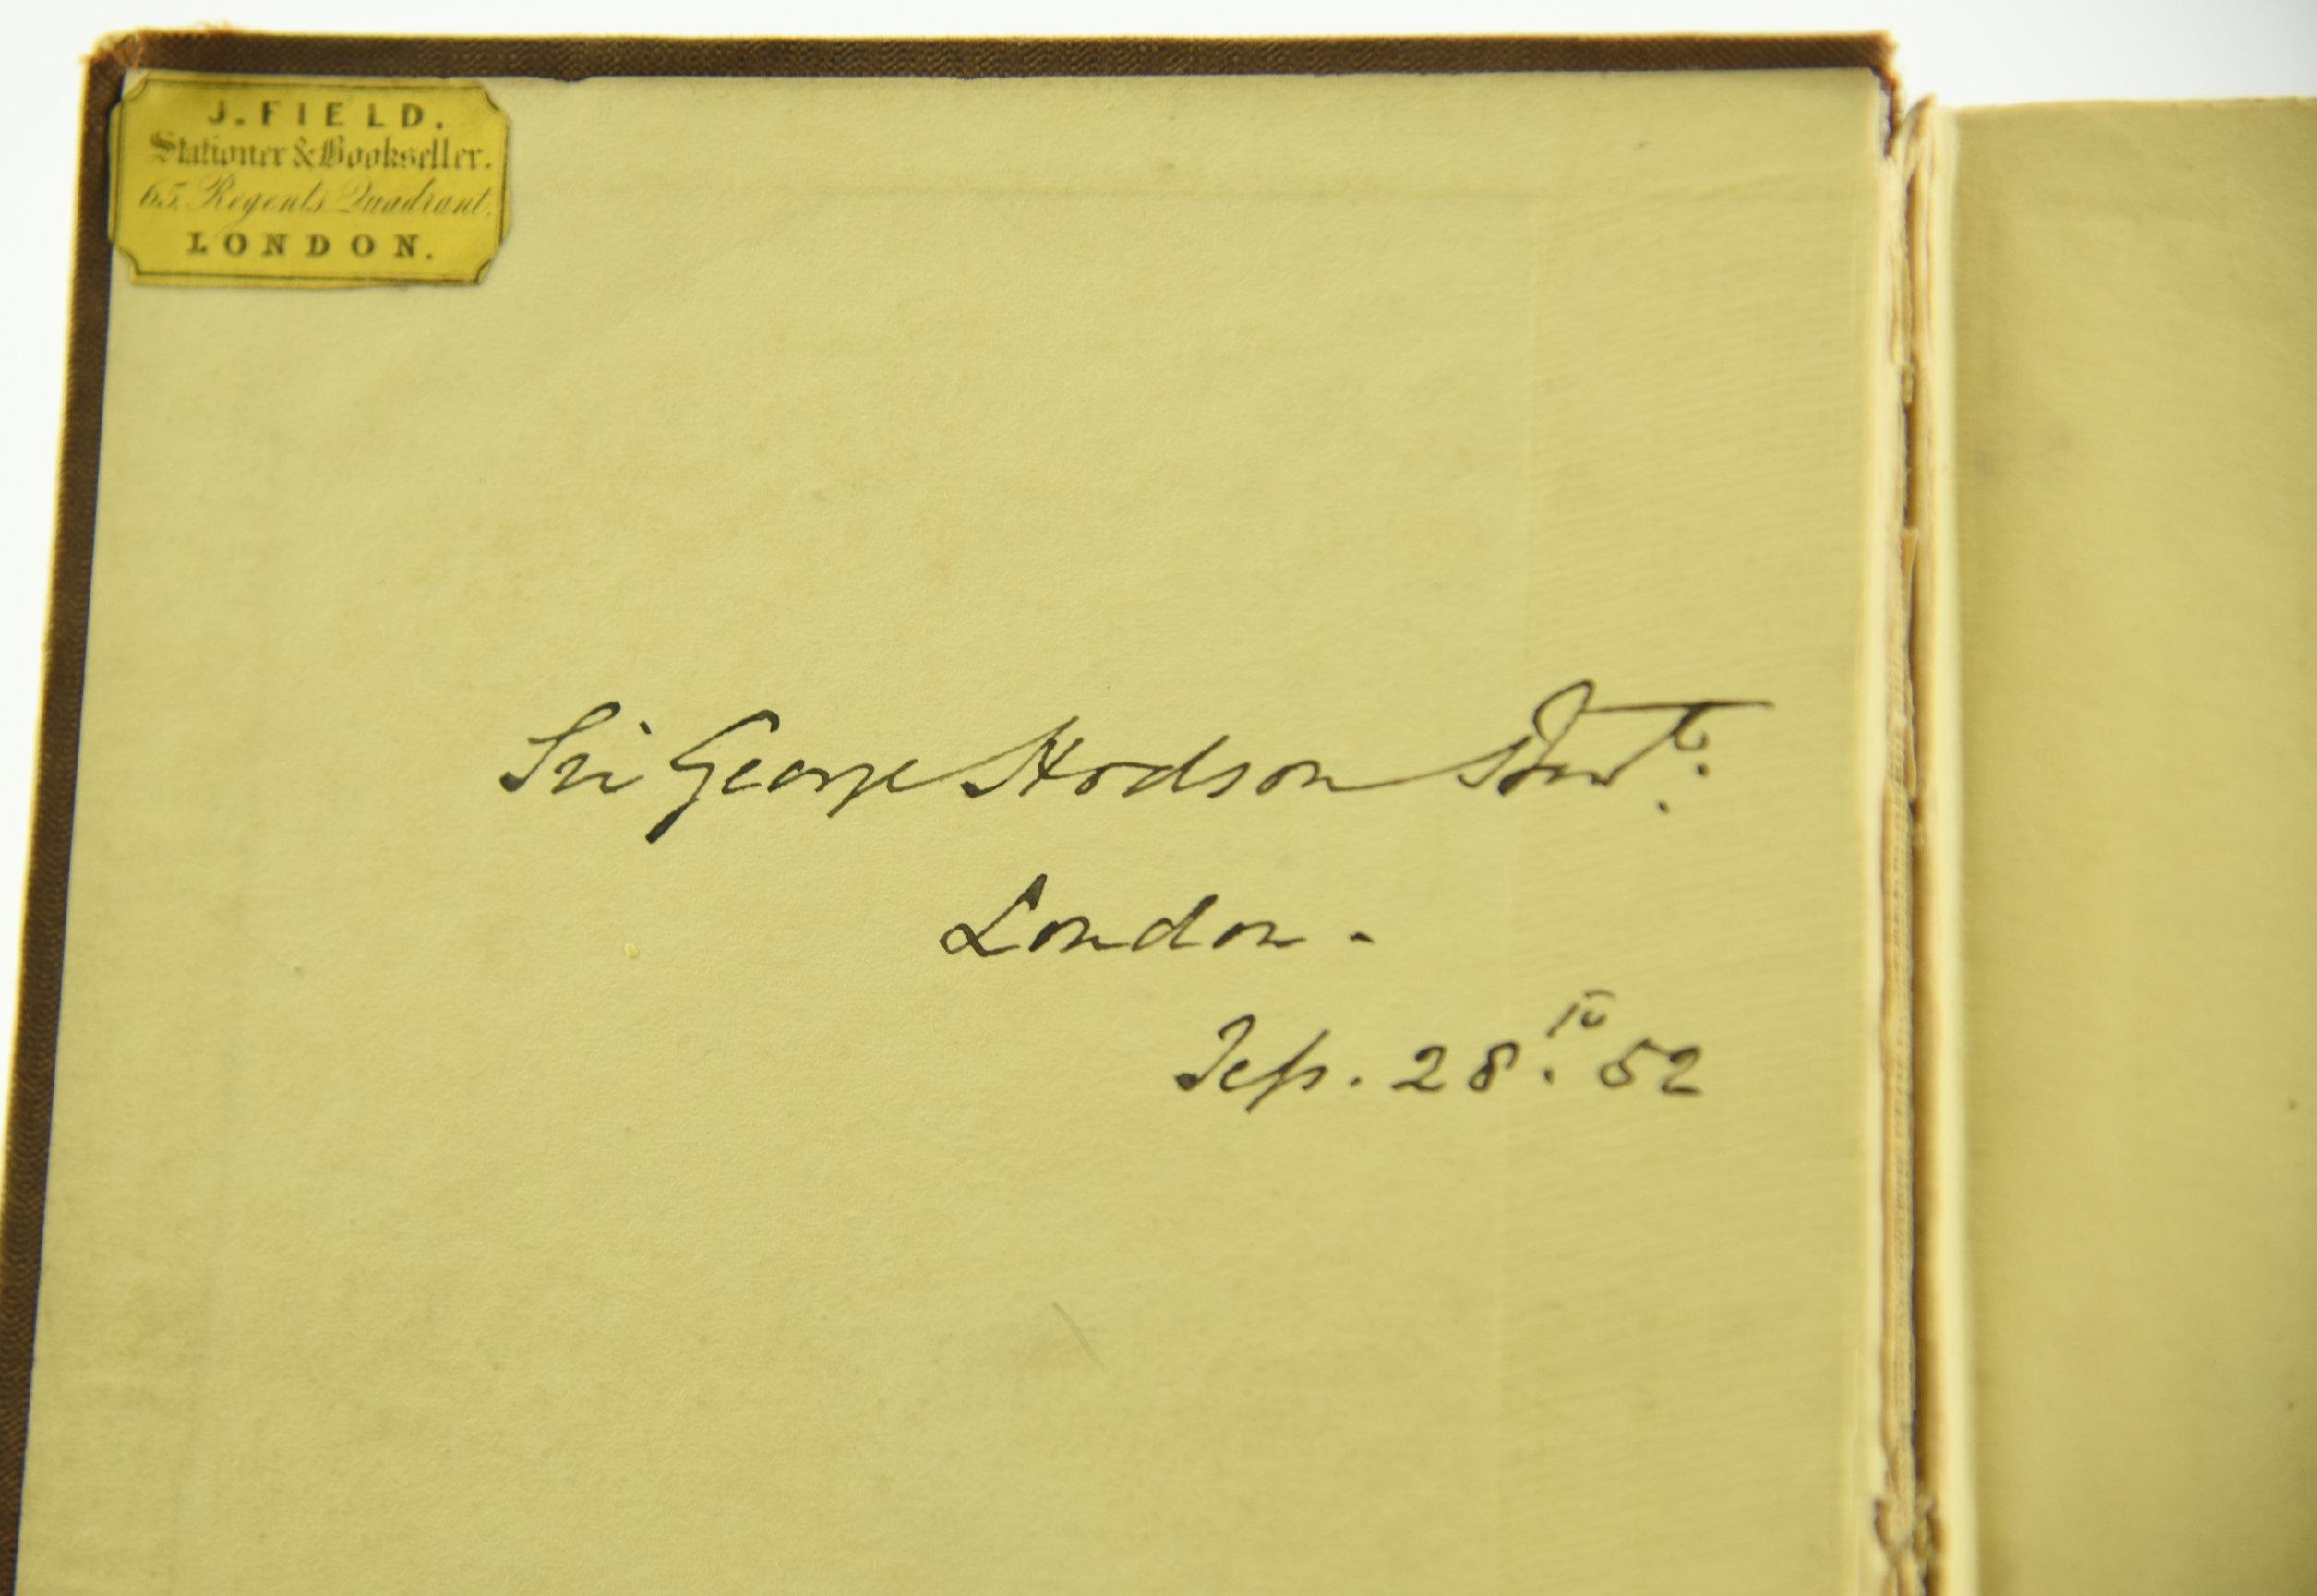 J. FIELD.
Stationer & Bookseller.
65, Regents Quadrant,
LONDON.
Sir George Hodson Bart.
London.
Sep. 28. 52